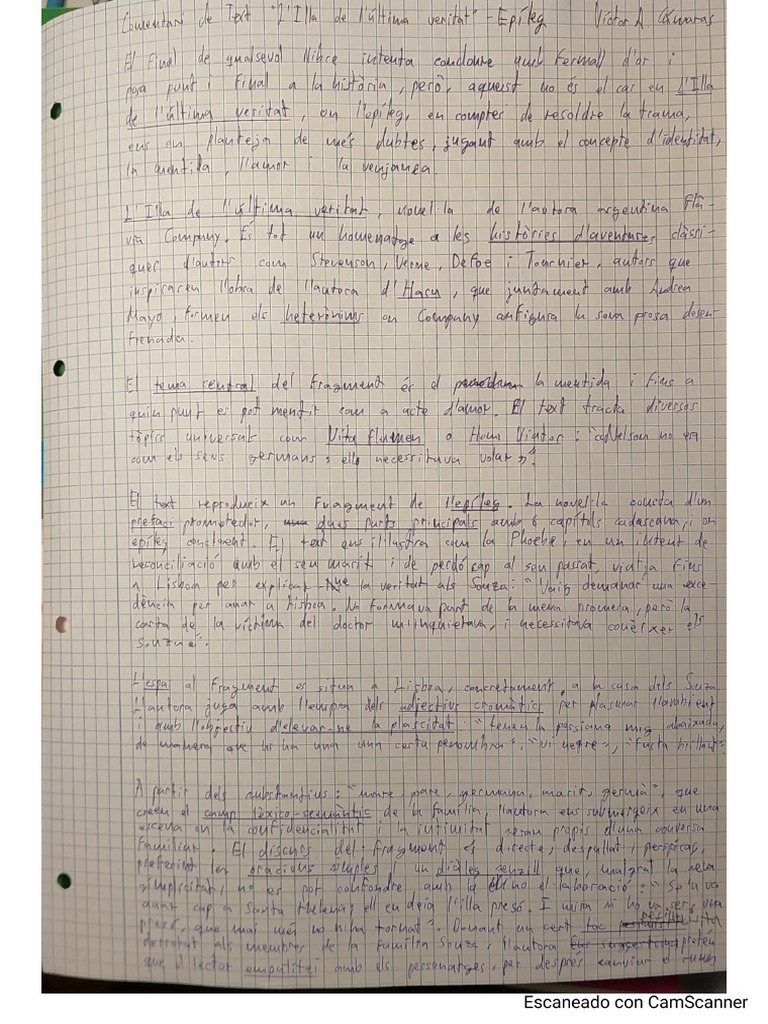 Comentari de Text "L'Illa de l'última veritat" - Epíleg Víctor A Cámaras
El final de qualsevol llibre intenta concloure amb fermall d'or i
posa punt i final a la història, però, aquest no és el cas en L'Illa
de l'última veritat, on l'epíleg, en comptes de resoldre la trama,
ens en planteja de més dubtes, jugant amb el concepte d'identitat,
la mentida, l'amor i la venjança.
L'Illa de l'última veritat, novel·la de l'autora argentina Flà-
via Company. És tot un homenatge a les històries d'aventures clàssi-
ques d'autors com Stevenson, Verne, Defoe i Tournier, autors que
inspiraren l'obra de l'autora d'Haru, que juntament amb Andrea
Mayo, formen els heterònims on Company configura la seva prosa desen
frenada.
El tema central del fragment és el la mentida i fins a
quin punt es pot mentir com a acte d'amor. El text tracta diversos
tòpics universals com Vita flumen o Homo Viator: "Nelson no era
com els seus germans; ell necessitava volar".
El text reprodueix un fragment de l'epíleg. La novel·la consta d'un
prefaci prometedor, dues parts principals amb 6 capítols cadascuna, i un
epíleg El text ens il·lustra com la Phoebe, en un intent de
reconciliació amb el seu marit i de perdó cap al seu passat, viatja fins
a Lisboa per explicar la veritat als Souza: "Vaig demanar una exce-
dència per anar a Lisboa. No formava part de la meva promesa, però la
carta de la víctima del doctor m'inquietava, i necessitava conèixer els
Souza".
L'espai al fragment es situa a Lisboa, concretament, a la casa dels Souza
L'autora juga amb l'empra dels adjectius cromàtics per plasmar l'ambient
i amb l'objectiu d'elevar-ne la plasticitat: "tenien la persiana mig abaixada,
de manera que hi ha una certa penombra", "vi negre", "fusta brillant".
A partir dels substantius: "mare, pare, germana, marit, germà", que
creen el camp lèxico-semàntic de la família, l'autora ens submergeix en una
escena on la confidencialitat i la intimitat seran propis d'una conversa
familiar. El discurs del fragment és directe, despullat i perspicaç,
preferint les oracions simples i un diàleg senzill que, malgrat la seva
simplicitat, no es pot confondre amb la no el·laboració: "Solia
anar cap a Santa Helena; ell en deia l'illa presó. I mira si ho va ser, una
presó, que mai més no n'ha tornat". Donant un cert toc
detretat als membres de la família Souza, l'autora pretén
que el lector empatitzi amb els personatges, per després canviar el
Escaneado con CamScanner